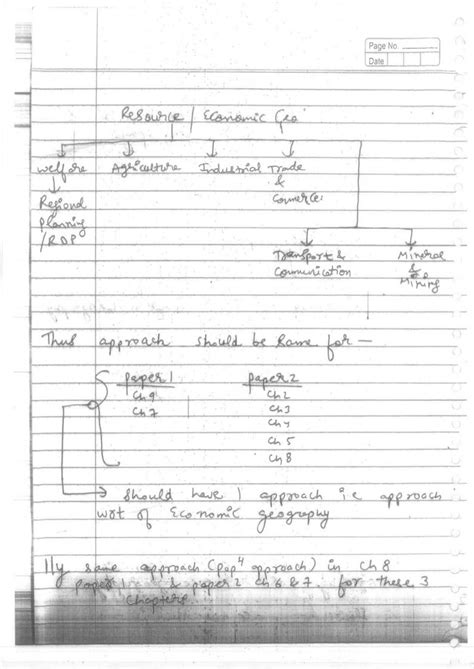 Page No.
Date
Resource / Economic Geo
welfare Agriculture Industrial Trade & Commerce
Regional Planning / RDP
Transport & Communication
Mineral & Mining
Thus approach should be same for —
Paper 1 Paper 2
Ch 9 Ch 2
Ch 7 Ch 3
Ch 4
Ch 5
Ch 8
→ Should have 1 approach i.e approach
wrt of Economic geography
lly same approach (popⁿ approach) in ch 8
paper 1 & paper 2 ch 6 & 7. for these 3
chapters